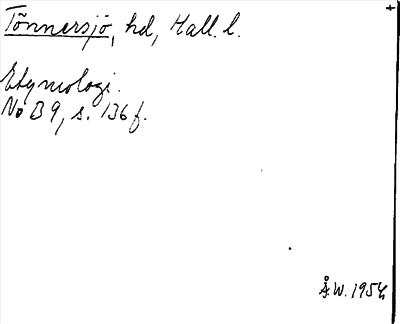 Tönnersjö, hd, Hall. l.
Etymologi.
No B 9, s. 136 f.
Å.W. 1954